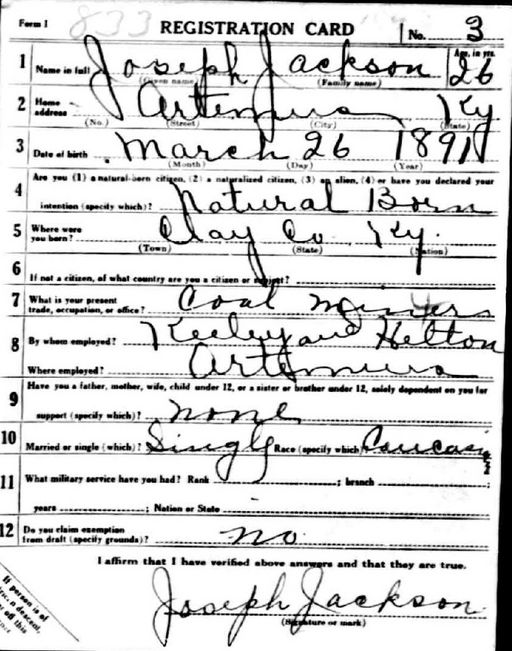 Form 1 833 REGISTRATION CARD No. 3
1 Name in full Joseph Jackson Age, in yrs. 26
(Given name) (Family name)
2 Home address Artemus Ky
(No.) (Street) (City) (State)
3 Date of birth March 26 1891
(Month) (Day) (Year)
4 Are you (1) a natural-born citizen, (2) a naturalized citizen, (3) an alien, (4) or have you declared your
intention (specify which)? Natural Born
5 Where were you born? Clay Co Ky.
(Town) (State) (Nation)
6 If not a citizen, of what country are you a citizen or subject?
7 What is your present trade, occupation, or office? Coal
8 By whom employed? Keeley and Helton
Where employed? Artemus
9 Have you a father, mother, wife, child under 12, or a sister or brother under 12, solely dependent on you for
support (specify which)? none
10 Married or single (which)? Single Race (specify which) Caucasian
11 What military service have you had? Rank ; branch ;
years ; Nation or State
12 Do you claim exemption from draft (specify grounds)? no
I affirm that I have verified above answers and that they are true.
Joseph Jackson
(Signature or mark)
If person is of
descent,
off this